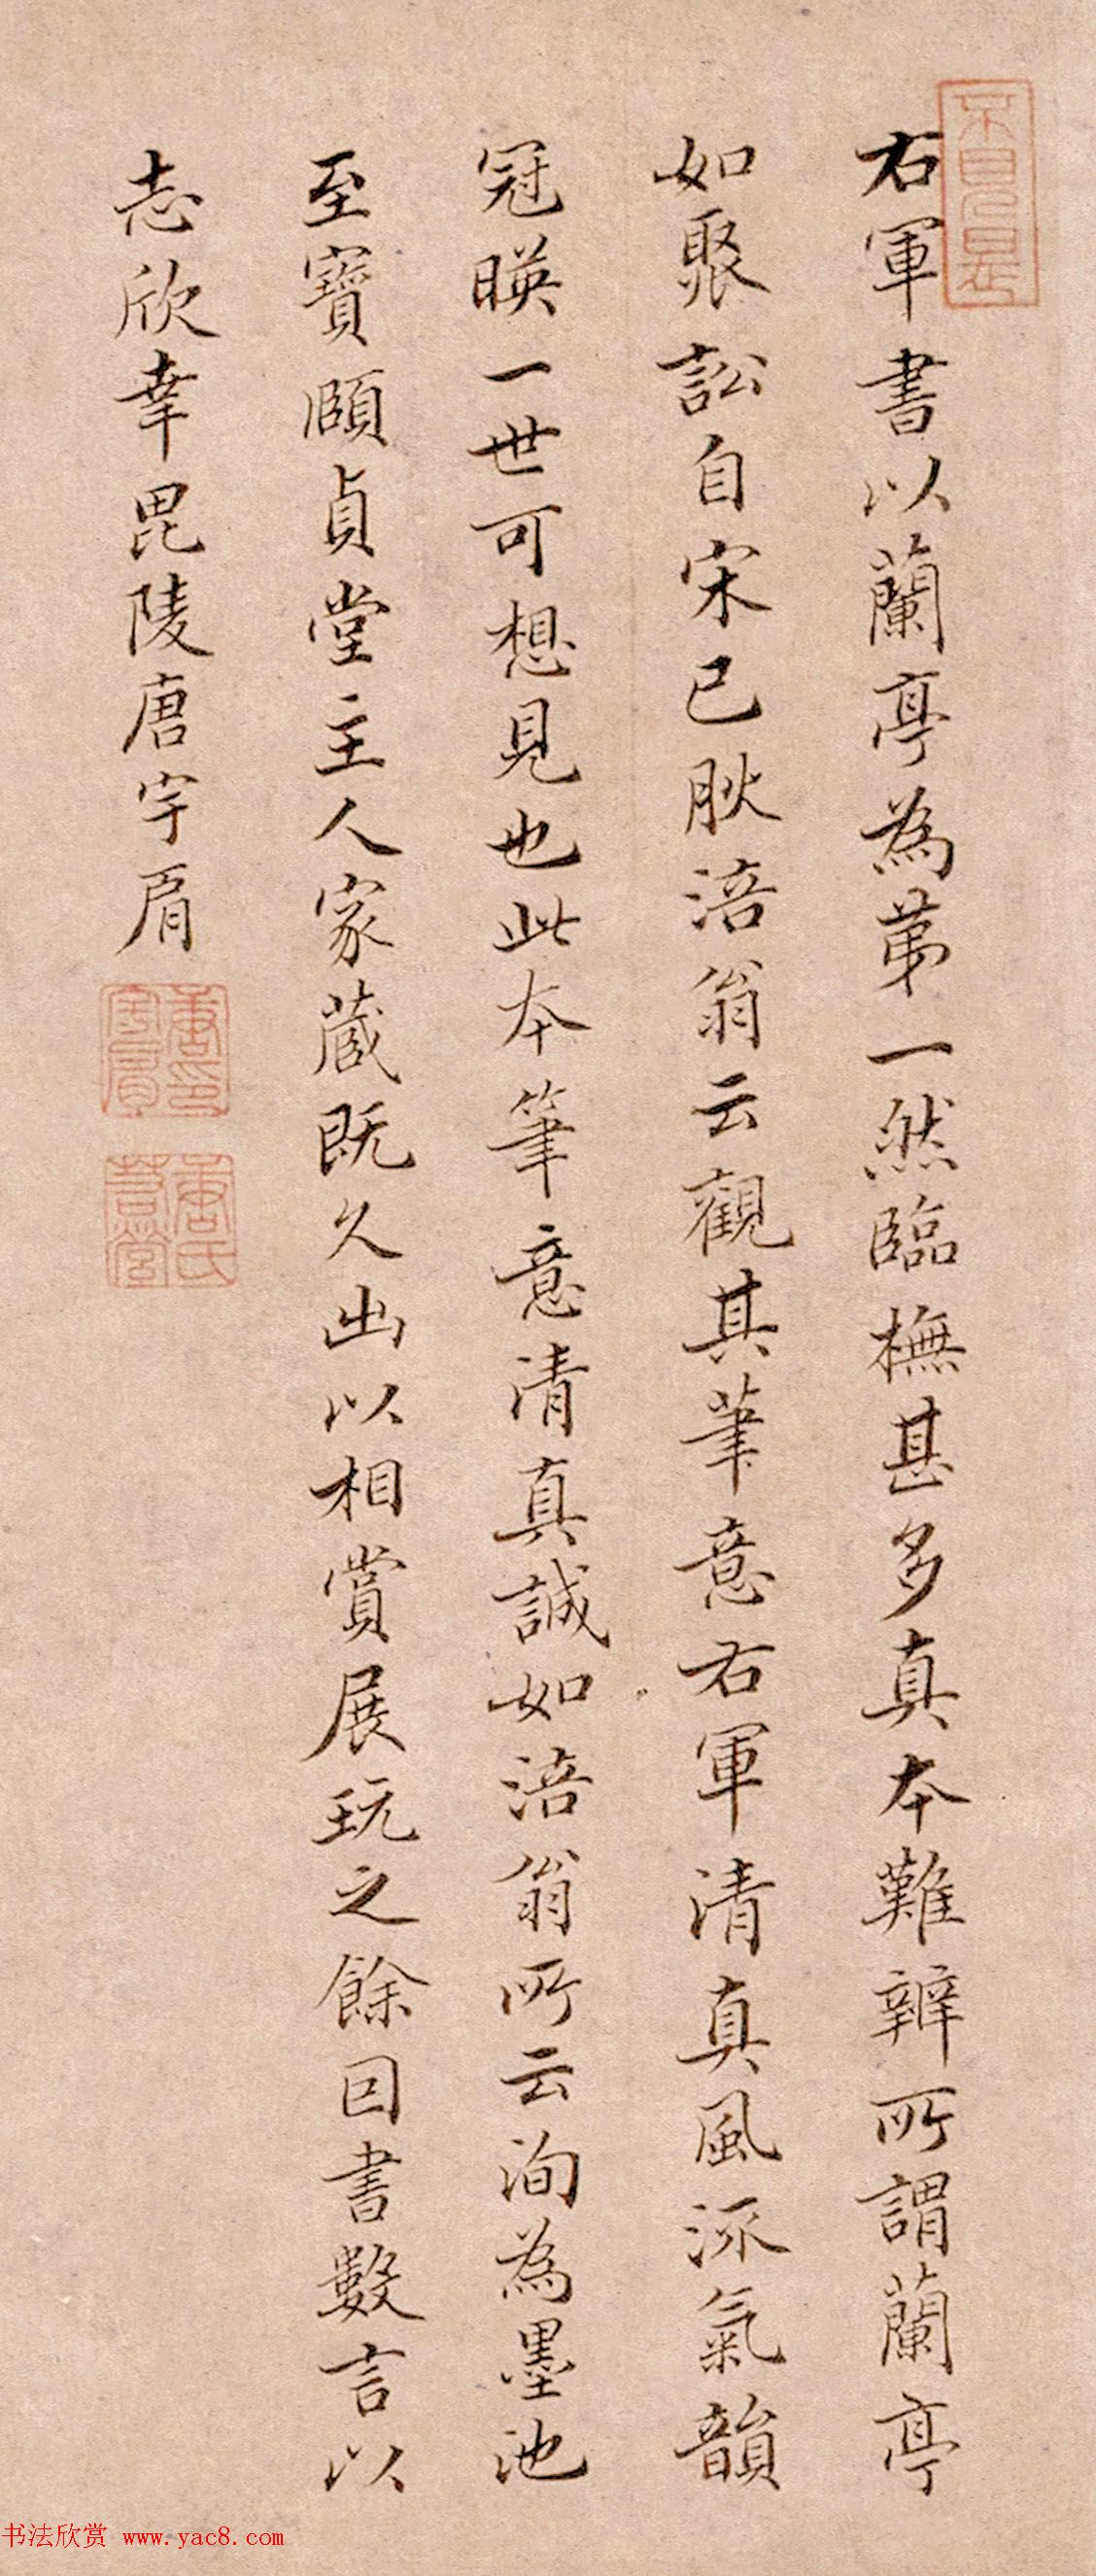 右軍書以蘭亭為苐一然臨橅甚多真本難辨所謂蘭亭
如聚訟自宋已肰涪翁云觀其筆意右軍清真風流氣韻
冠暎一世可想見也此本筆意清真誠如涪翁所云洵為墨池
至寶頤貞堂主人家蔵既久出以相賞展玩之餘回書數言以
志欣幸毘陵唐宇肩
唐印宇肩
書法欣赏 www.yac8.com